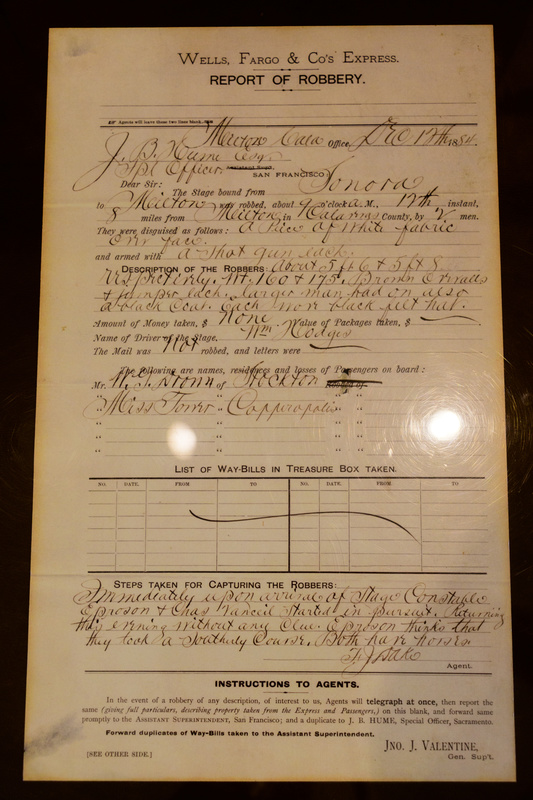 WELLS, FARGO & CO'S EXPRESS.
REPORT OF ROBBERY.
Agents will leave these two lines blank.
Milton Cala Office, Dec 12th 1884.
J. B. Hume Esqr
Spl Officer. 
SAN FRANCISCO
Dear Sir:
The Stage bound from Sonora
to Milton was robbed, about 9 o'clock A. M., 12th instant,
8 miles from Milton, in Calaveras County, by 2 men.
They were disguised as follows: a Piece of White fabric
over face.
and armed with a Shot gun each.
DESCRIPTION OF THE ROBBERS about 5 ft 6 & 5 ft 8
respectively. Wt. 160 & 175. Brown Overalls
& jumper each. larger man had on also
a black Coat. Each wore black felt hat.
Amount of Money taken, $ None Value of Packages taken, $
Name of Driver of the Stage. Wm Hodges
The Mail was Not robbed, and letters were
The following are names, residences and losses of Passengers on board:
Mr. Brown of Stockton
" Miss Tower " Copperopolis
" " "
" " "
" " "
LIST OF WAY-BILLS IN TREASURE BOX TAKEN.
NO. DATE. FROM TO NO. DATE. FROM TO
STEPS TAKEN FOR CAPTURING THE ROBBERS:
Immediately upon arrival of Stage Constable
Eproson & Chas started in pursuit. Returning
this evening without any Clue. Eproson thinks that
they took a Southerly Course. Both have horses
Agent.
INSTRUCTIONS TO AGENTS.
In the event of a robbery of any description, of interest to us, Agents will telegraph at once, then report the
same (giving full particulars, describing property taken from the Express and Passengers,) on this blank, and forward same
promptly to the ASSISTANT SUPERINTENDENT, San Francisco; and a duplicate to J. B. HUME, Special Officer, Sacramento.
Forward duplicates of Way-Bills taken to the Assistant Superintendent.
JNO. J. VALENTINE,
Gen. Sup't.
[SEE OTHER SIDE.]